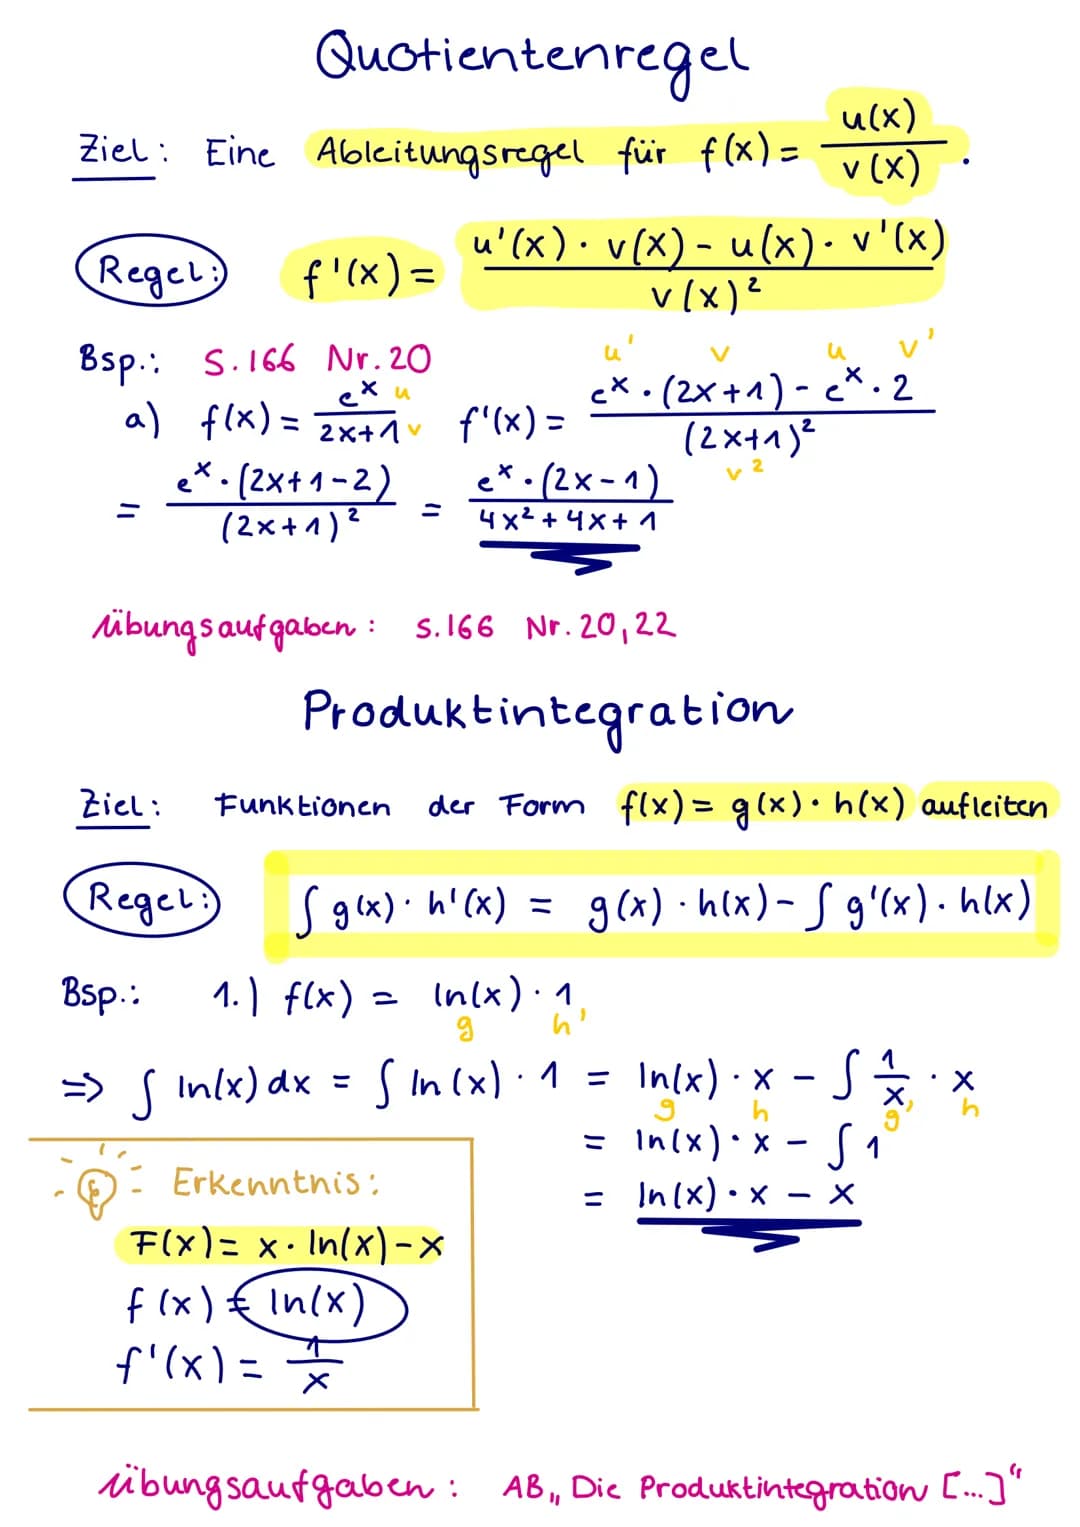 Quotientenregel
Ziel: Eine Ableitungsregel für f(x) = u(x)/v(x).
Regel: f'(x) = (u'(x) · v(x) - u(x) · v'(x))/v(x)²
Bsp.: S.166 Nr.20
u' v u v'
a) f(x) = e^x/(2x+1) u v f'(x) = (e^x · (2x+1) - e^x · 2)/(2x+1)²
v²
= (e^x · (2x+1-2))/(2x+1)² = (e^x · (2x-1))/(4x²+4x+1)
Übungsaufgaben: S.166 Nr. 20,22
Produktintegration
Ziel: Funktionen der Form f(x) = g(x) · h(x) aufleiten
Regel: ∫ g(x) · h'(x) = g(x) · h(x) - ∫ g'(x) · h(x)
Bsp.: 1.) f(x) = ln(x) · 1
g h'
=> ∫ ln(x) dx = ∫ ln(x) · 1 = ln(x) · x - ∫ 1/x · x
g h g' h
= ln(x) · x - ∫ 1
= ln(x) · x - x
Erkenntnis:
F(x) = x · ln(x) - x
f(x) = ln(x)
f'(x) = 1/x
Übungsaufgaben: AB „Die Produktintegration [...]“